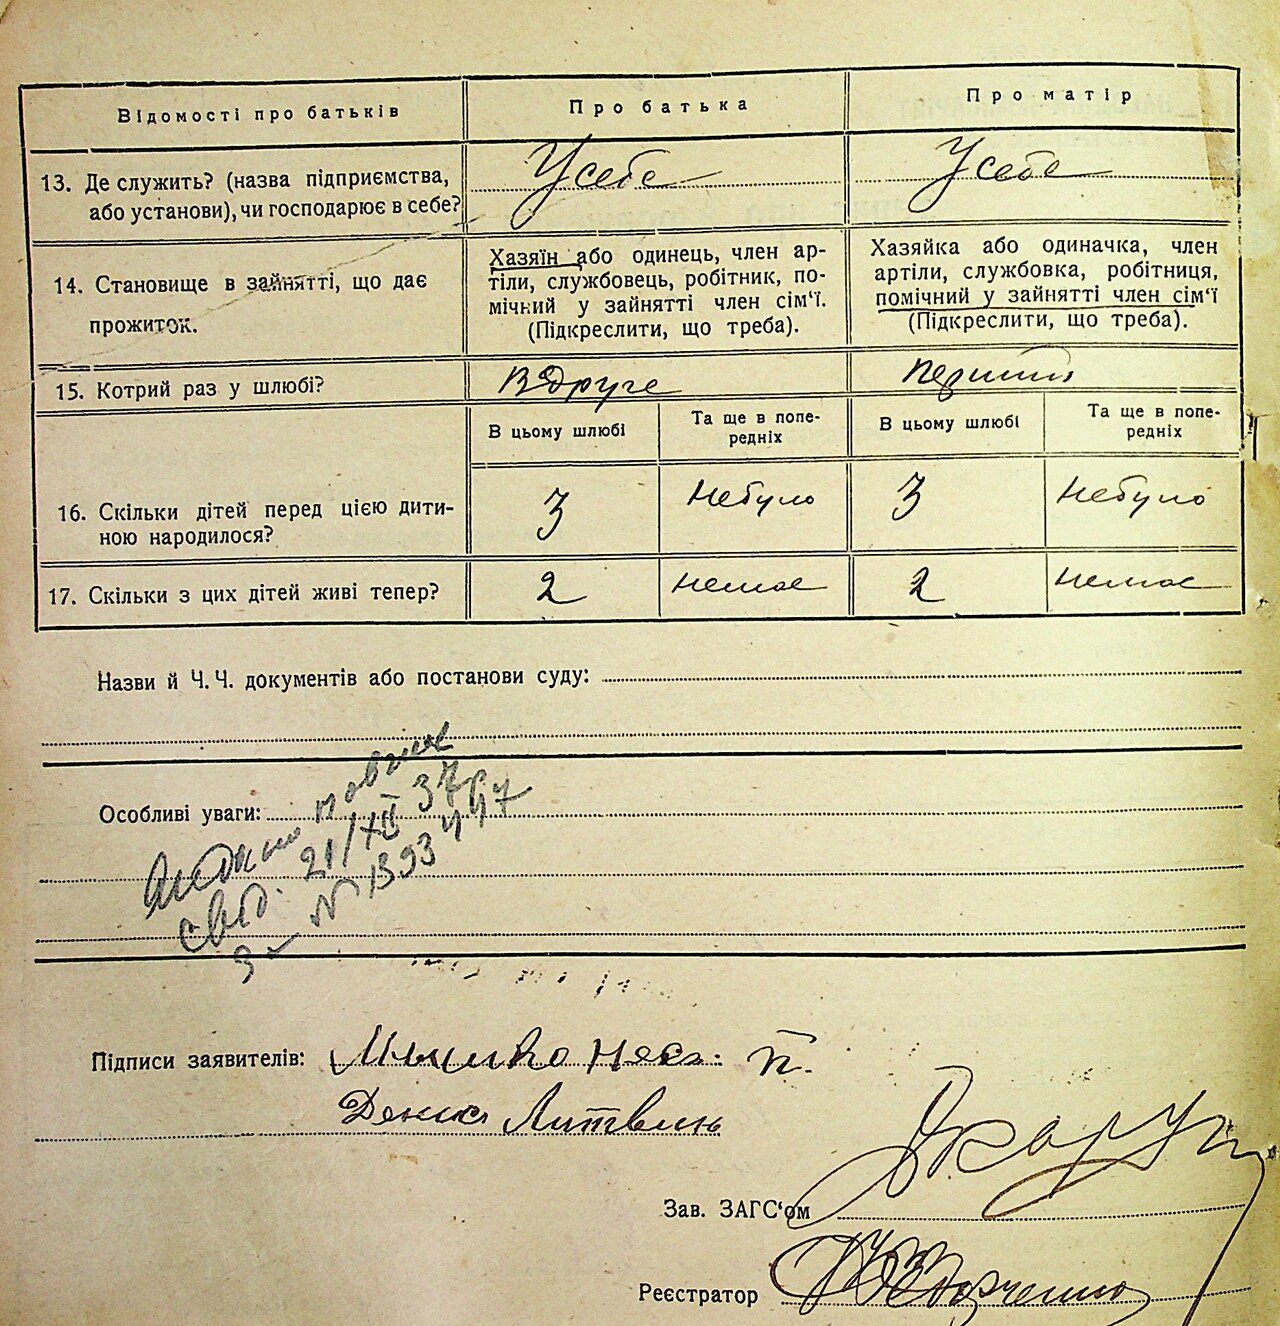 Відомості про батьків
Про батька
Про матір
13. Де служить? (назва підприємства,
або установи), чи господарює в себе?
У себе
У себе
14. Становище в зайнятті, що дає
прожиток.
Хазяїн або одинець, член ар-
тіли, службовець, робітник, по-
мічний у зайнятті член сім'ї.
(Підкреслити, що треба).
Хазяйка або одиначка, член
артіли, службовка, робітниця,
помічний у зайнятті член сім'ї
(Підкреслити, що треба).
15. Котрий раз у шлюбі?
Вдруге
перший
В цьому шлюбі
Та ще в попе-
редніх
В цьому шлюбі
Та ще в попе-
редніх
16. Скільки дітей перед цією дити-
ною народилося?
3
Небуло
3
Небуло
17. Скільки з цих дітей живі тепер?
2
Немає
2
Немає
Назви й Ч. Ч. документів або постанови суду:
Особливі уваги:
повтор
свід. 21/XII 37р
за №
Підписи заявителів:
Денис Литвин
Зав. ЗАГС'ом
Реєстратор